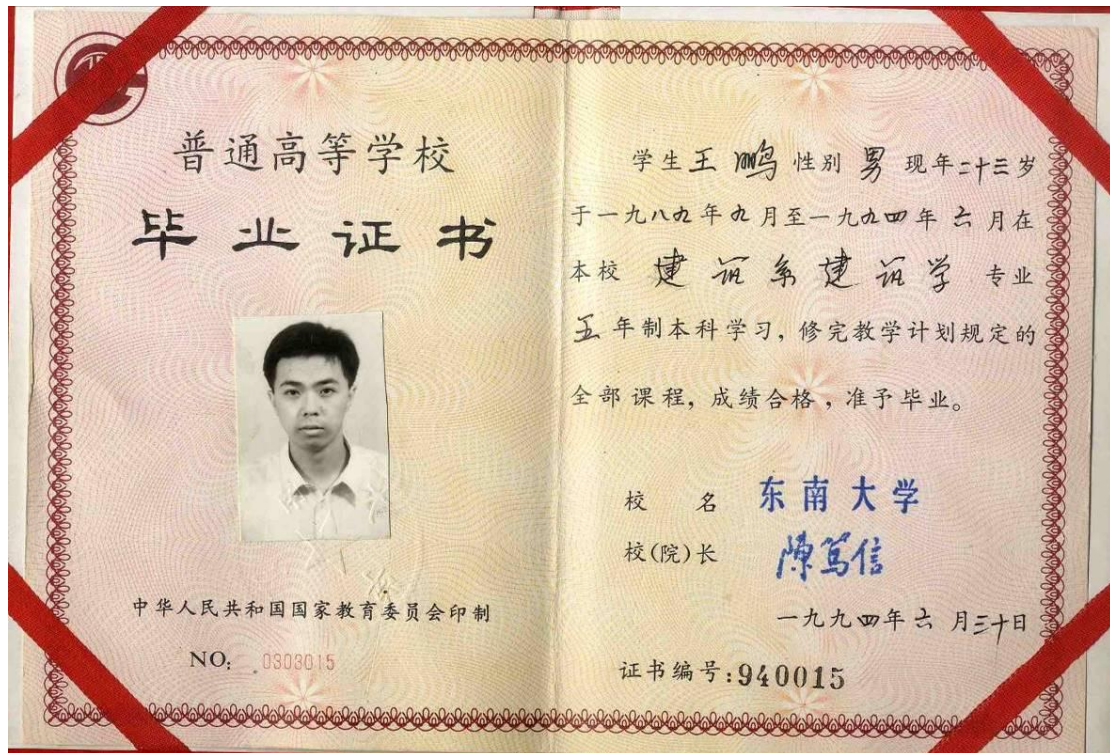 普通高等学校
毕业证书
中华人民共和国国家教育委员会印制
NO: 0303015
学生王鹏性别男现年二十三岁
于一九八九年九月至一九九四年六月在
本校 建筑系建筑学 专业
五年制本科学习，修完教学计划规定的
全部课程，成绩合格，准予毕业。
校 名 东南大学
校(院)长 陈笃信
一九九四年六月三十日
证书编号:940015